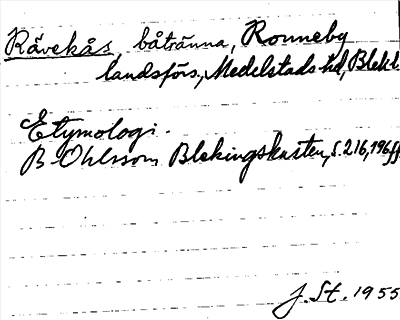 Rävekås, båtränna, Ronneby
landsförs., Medelstads hd, Blek l.
Etymologi.
B Ohlsson Blekingskusten, s. 216, 196 ff.
J. St. 1955